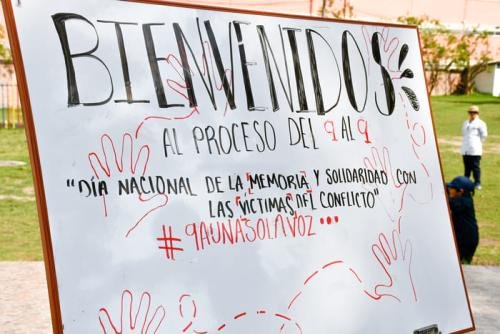 BIENVENIDOS
AL PROCESO DEL 9 AL 9
"DÍA NACIONAL DE LA MEMORIA Y SOLIDARIDAD CON
LAS VÍCTIMAS DEL CONFLICTO"
#9AUNASOLAVOZ...